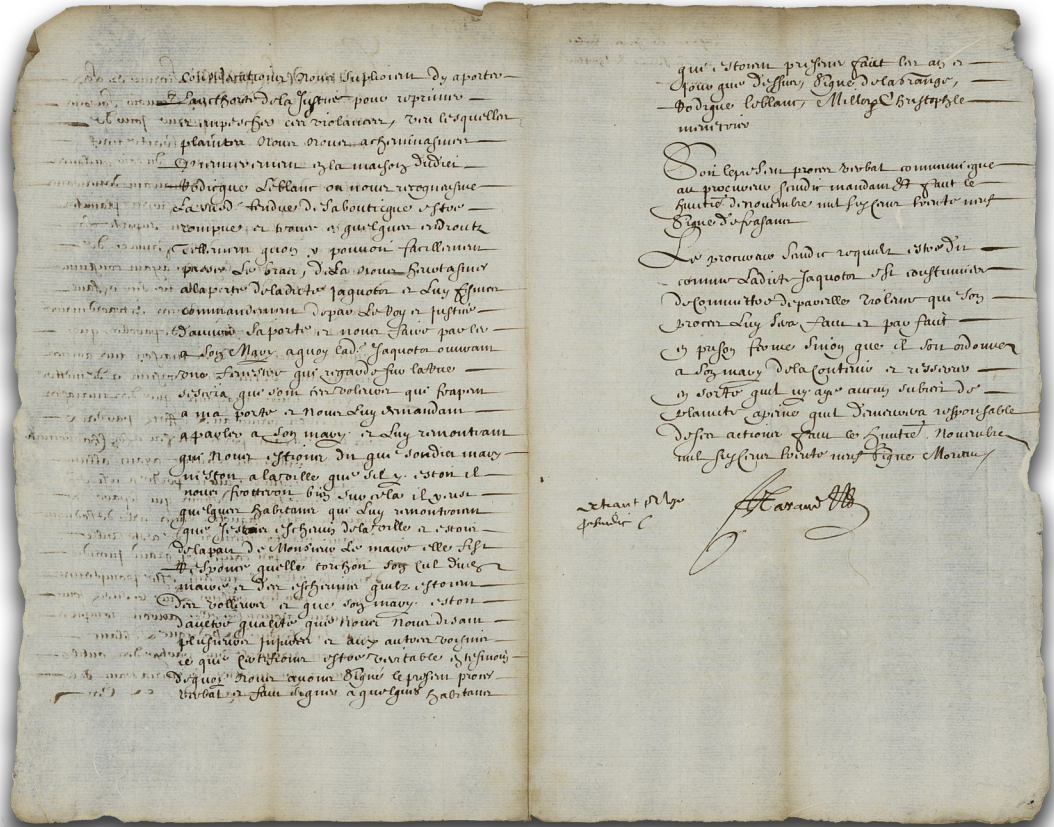 nous suplioient dy aporter
Lauthorité de la Justice pour reprimer
et empescher ces violances, veu lesquelles
plaintes Nous Nous acheminasmes
en la maison dudit
Rodicque Leblanc ou nous recognusme
rompue et trouee en quelques endroitz
Tellement quon y pouvoit facillement
passer Le bras, de La Nous heurtasmes
a la porte de ladicte Jaquotot et Luy fismes
commandement de par Le Roy et Justice
douvrir sa porte et nous faire parler
a Son Mary, a quoy lad. Jaquotot ouvrant
une fenestre qui regarde sur la rue
qui sont ces voleurs qui frapent
a ma porte et Nous Luy demandant
a parler a Son mary et Luy remontrant
que Nous estions du que sondict mary
nestoit a la ville que sil y estoit il
nous frotteroit bien sur cela il y eust
quelques habitans qui Luy remontrerent
que Jestois eschevin de la ville et estois
de la part de Monsieur Le maire elle fist
Response quelle torchoit son Cul du
maire et des eschevins quilz estoient
des volleurs et que son mary estoit
daultre qualité que Nous Nous disant
plusieurs injures et aux autres voisins
ce que Certifions estre veritable en tesmoin
de quoy Nous avons Signé le present proces
verbal et faict signer a quelques habitans
que estoient presens faict les an et
jour que dessus, Signé delagrange,
Rodigue leblanc, Millot Christophle
menetrier
Soit le present proces verbal communicqué
au procureur scindic mandant &c faict le
huictie. de novembre mil six cens trente neuf
Signé defrasans
Le procureur scindic requiert estre dit
comme Ladicte Jaquotot est coustumiere
de Commettre de pareille violence que Son
proces Luy sera faict et parfaict
en prison ferme sinon que il soit ordonné
a son mary de la Contenir et resserrer
en sorte quil ny aye aucun subiect de
plaincte a peine quil demeurera responsable
de ses actions faict le huictie. Novembre
mil six Cens trente neuf Signé Moreau